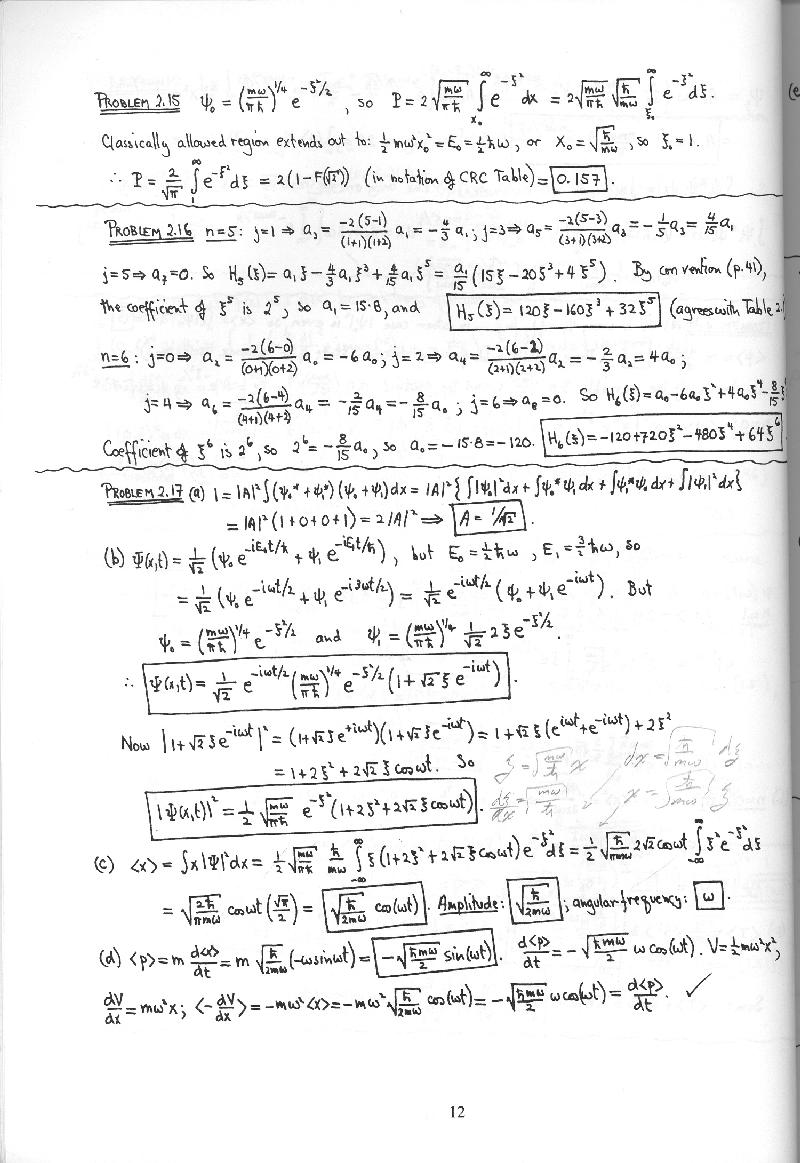 PROBLEM 2.15 ψ₀ = (mω/πħ)^{1/4} e^{-ξ²/2}, so P = 2√(mω/πħ) ∫_{x₀}^{∞} e^{-ξ²} dx = 2√(mω/πħ) √(ħ/mω) ∫_{ξ₀}^{∞} e^{-ξ²} dξ.
Classically allowed region extends out to: ½mω²x₀² = E₀ = ½ħω, or x₀ = √(ħ/mω), so ξ₀ = 1.
∴ P = 2/√π ∫_{1}^{∞} e^{-ξ²} dξ = 2(1-F(√2)) (in notation of CRC Table) = 0.157.
PROBLEM 2.16 n=5: j=1 ⇒ a₃ = -2(5-1)/(1+1)(1+2) a₁ = -4/3 a₁; j=3 ⇒ a₅ = -2(5-3)/(3+1)(3+2) a₃ = -1/5 a₃ = 4/15 a₁
j=5 ⇒ a₇=0. So H₅(ξ) = a₁ξ - 4/3 a₁ξ³ + 4/15 a₁ξ⁵ = a₁/15 (15ξ - 20ξ³ + 4ξ⁵). By convention (p. 41),
the coefficient of ξ⁵ is 2⁵, so a₁ = 15·8, and H₅(ξ) = 120ξ - 160ξ³ + 32ξ⁵ (agrees with Table 2.1
n=6: j=0 ⇒ a₂ = -2(6-0)/(0+1)(0+2) a₀ = -6a₀; j=2 ⇒ a₄ = -2(6-2)/(2+1)(2+2) a₂ = -2/3 a₂ = 4a₀;
j=4 ⇒ a₆ = -2(6-4)/(4+1)(4+2) a₄ = -2/15 a₄ = -8/15 a₀; j=6 ⇒ a₈=0. So H₆(ξ) = a₀ - 6a₀ξ² + 4a₀ξ⁴ - 8/15 ξ⁶
Coefficient of ξ⁶ is 2⁶, so 2⁶ = -8/15 a₀, so a₀ = -15·8 = -120. H₆(ξ) = -120 + 720ξ² - 480ξ⁴ + 64ξ⁶
PROBLEM 2.17 (a) 1 = |A|² ∫(ψ₀* + ψ₁*)(ψ₀ + ψ₁)dx = |A|² {∫|ψ₀|²dx + ∫ψ₀*ψ₁dx + ∫ψ₁*ψ₀dx + ∫|ψ₁|²dx}
= |A|²(1+0+0+1) = 2|A|² ⟹ A = 1/√2.
(b) Ψ(x,t) = 1/√2 (ψ₀e^{-iE₀t/ħ} + ψ₁e^{-iE₁t/ħ}), but E₀ = ½ħω, E₁ = 3/2 ħω, so
= 1/√2 (ψ₀e^{-iωt/2} + ψ₁e^{-i3ωt/2}) = 1/√2 e^{-iωt/2} (ψ₀ + ψ₁e^{-iωt}). But
ψ₀ = (mω/πħ)^{1/4} e^{-ξ²/2} and ψ₁ = (mω/πħ)^{1/4} 1/√2 2ξe^{-ξ²/2}.
∴ Ψ(x,t) = 1/√2 e^{-iωt/2} (mω/πħ)^{1/4} e^{-ξ²/2} (1 + √2 ξ e^{-iωt}).
Now |1+√2ξe^{-iωt}|² = (1+√2ξe^{+iωt})(1+√2ξe^{-iωt}) = 1+√2ξ(e^{iωt}+e^{-iωt}) + 2ξ²
= 1+2ξ² + 2√2 ξ cosωt. So
ξ = √(mω/ħ) x dx = √(ħ/mω) dξ
|Ψ(x,t)|² = ½ √(mω/πħ) e^{-ξ²} (1+2ξ²+2√2ξ cosωt).
dξ/dx = √(mω/ħ) x = √(ħ/mω) ξ
(c) ⟨x⟩ = ∫x|Ψ|²dx = ½ √(mω/πħ) ħ/mω ∫_{-∞}^{∞} ξ(1+2ξ²+2√2ξcosωt) e^{-ξ²}dξ = ½ √(ħ/πmω) 2√2 cosωt ∫_{-∞}^{∞} ξ²e^{-ξ²}dξ
= √(2ħ/πmω) cosωt (√π/2) = √(ħ/2mω) cos(ωt). Amplitude: √(ħ/2mω); angular frequency: ω.
(d) ⟨p⟩ = m d⟨x⟩/dt = m √(ħ/2mω) (-ωsinωt) = -√(ħmω/2) sin(ωt). d⟨p⟩/dt = -√(ħmω/2) ω cos(ωt). V = ½mω²x²,
dV/dx = mω²x; ⟨-dV/dx⟩ = -mω²⟨x⟩ = -mω² √(ħ/2mω) cos(ωt) = -√(ħmω/2) ω cos(ωt) = d⟨p⟩/dt. ✓
12